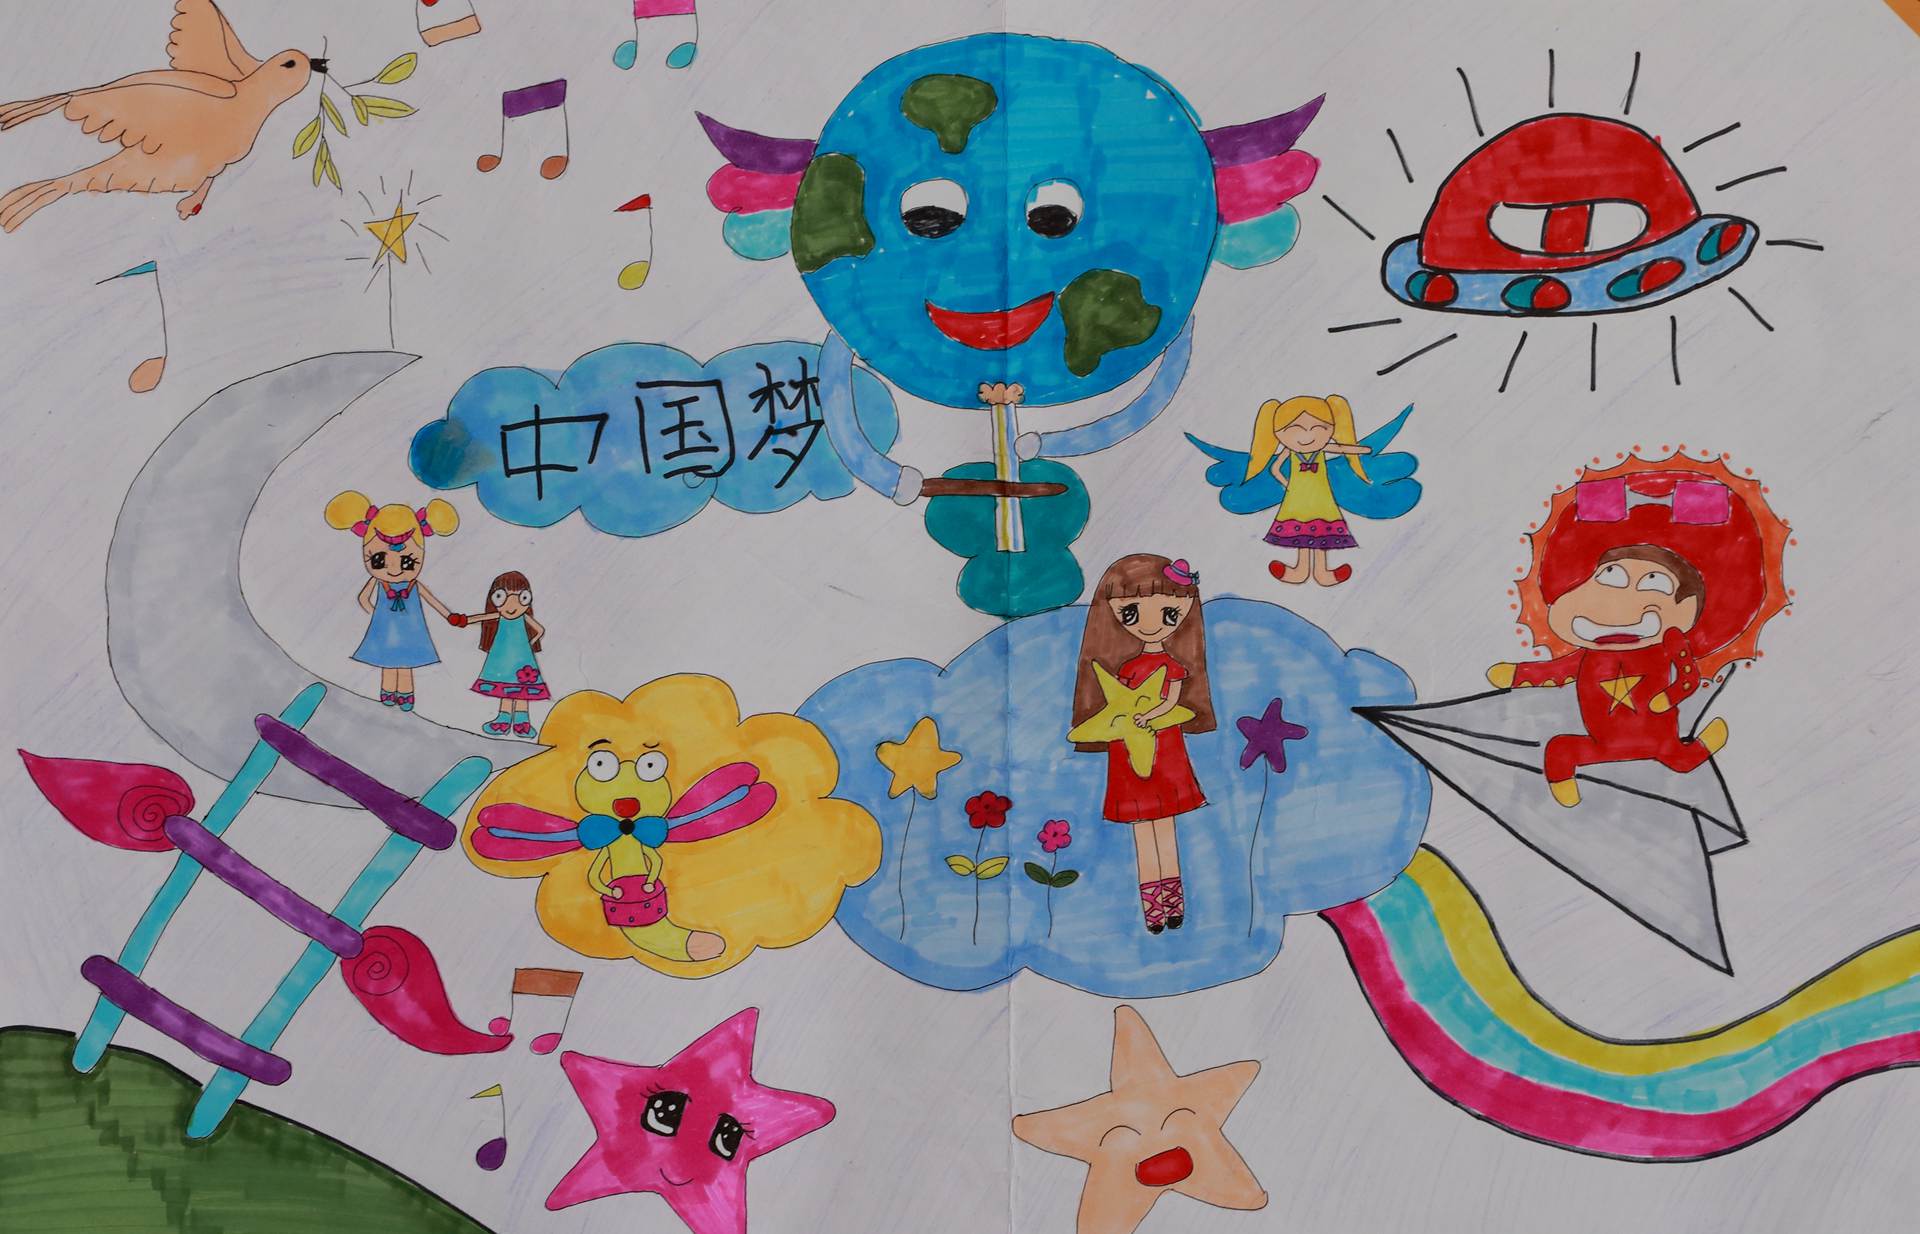 中国梦